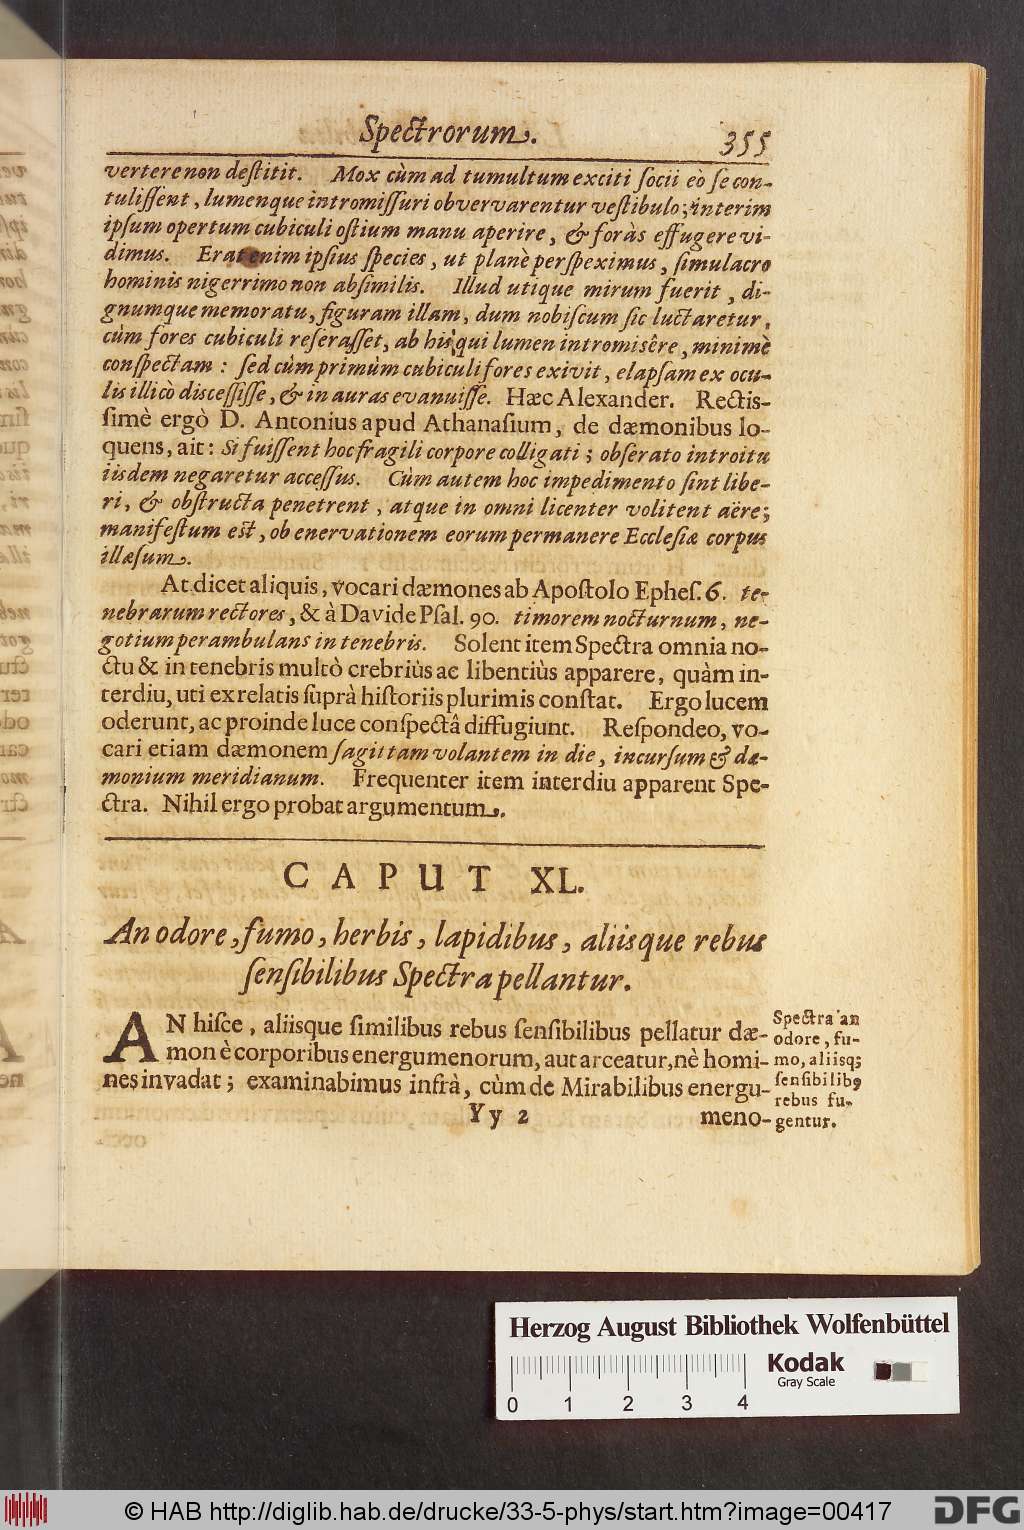 Spectrorum. 355
verterenon deſtitit. Mox cùm ad tumultum exciti ſocii eò ſe con-
tuliſſent, lumenque intromiſſuri obvervarentur veſtibulo; interim
ipſum opertum cubiculi oſtium manu aperire, & foràs effugere vi-
dimus. Erat enim ipſius ſpecies, ut planè perſpeximus, ſimulacro
hominis nigerrimo non abſimilis. Illud utique mirum fuerit, di-
gnumque memoratu, figuram illam, dum nobiſcum ſic luctaretur,
cùm fores cubiculi reſeraſſet, ab his, qui lumen intromiſêre, minimè
conſpectam: ſed cùm primùm cubiculi fores exivit, elapſam ex ocu-
lis illicò disceſſiſſe, & in auras evanuiſſe. Hæc Alexander. Rectis-
ſimè ergò D. Antonius apud Athanaſium, de dæmonibus lo-
quens, ait: Si fuiſſent hoc fragili corpore colligati; obſerato introitu
iisdem negaretur acceſſus. Cùm autem hoc impedimento ſint libe-
ri, & obſtructa penetrent, atque in omni licenter volitent aëre;
manifeſtum eſt, ob enervationem eorum permanere Eccleſiæ corpus
illæſum.
At dicet aliquis, vocari dæmones ab Apoſtolo Epheſ. 6. te-
nebrarum rectores, & à Davide Pſal. 90. timorem nocturnum, ne-
gotium perambulans in tenebris. Solent item Spectra omnia no-
ctu & in tenebris multò crebriùs ac libentiùs apparere, quàm in-
terdiu, uti ex relatis ſuprà hiſtoriis plurimis conſtat. Ergo lucem
oderunt, ac proinde luce conſpectâ diffugiunt. Reſpondeo, vo-
cari etiam dæmonem ſagittam volantem in die, incurſum & dæ-
monium meridianum. Frequenter item interdiu apparent Spe-
ctra. Nihil ergo probat argumentum.
CAPUT XL.
An odore, fumo, herbis, lapidibus, aliisque rebus
ſenſibilibus Spectra pellantur.
AN hiſce, aliisque ſimilibus rebus ſenſibilibus pellatur dæ-
mon è corporibus energumenorum, aut arceatur, nè homi-
nes invadat; examinabimus infrà, cùm de Mirabilibus energu-
Yy 2 meno-
Spectra an
odore, fu-
mo, aliisq;
ſenſibilibꝰ
rebus fu-
gentur.
Herzog August Bibliothek Wolfenbüttel
Kodak
Gray Scale
0 1 2 3 4
© HAB http://diglib.hab.de/drucke/33-5-phys/start.htm?image=00417
DFG